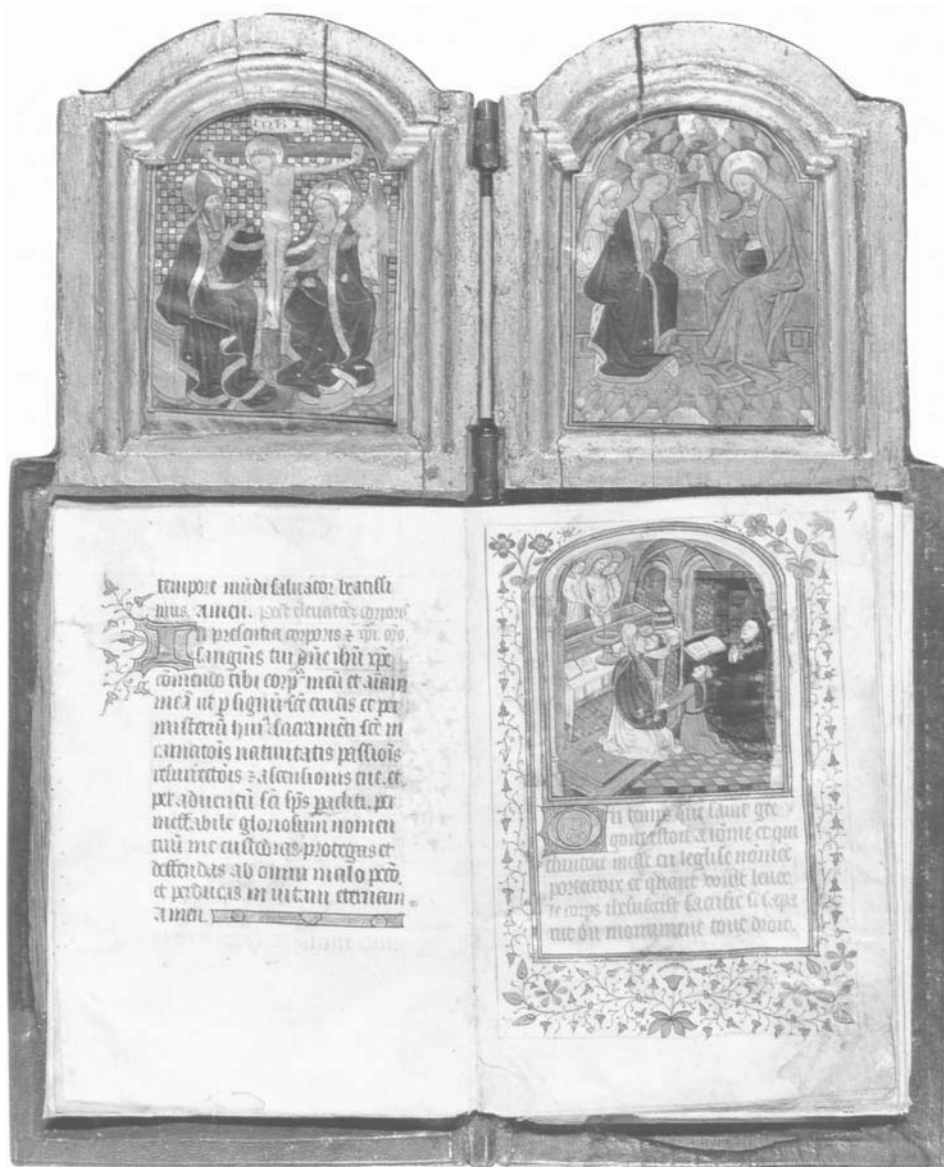 INRI
tempore mūdi saluator beatissi
mus. amen. Post eleuatōz corporis
In presentia corporis ⁊ xp̄i. oro.
sanguinis tui dn̄e ihū xp̄e
cōmendo tibi corp⁹ meū et aīam
meā ut p signū sc̄e crucis et per
misteriū hui⁹ sacramēti sc̄e in
carnatōis natiuitatis passiōis
resurrectōis ⁊ ascensionis tue. et
per aduentū sc̄i sp̄s paracliti. per
ineffabile gloriosum nomen
tuū me custodias protegas et
deffendas ab omni malo pctō.
et perducas in uitam eternam.
amen.
4
On temps que saint gre
goire estoit a rōme et qui
chantoit messe en leglise nōmee
portecroix et quant voult leuer
le corps ihesucrist sacrifie si sapa
rut du monument tout droit.